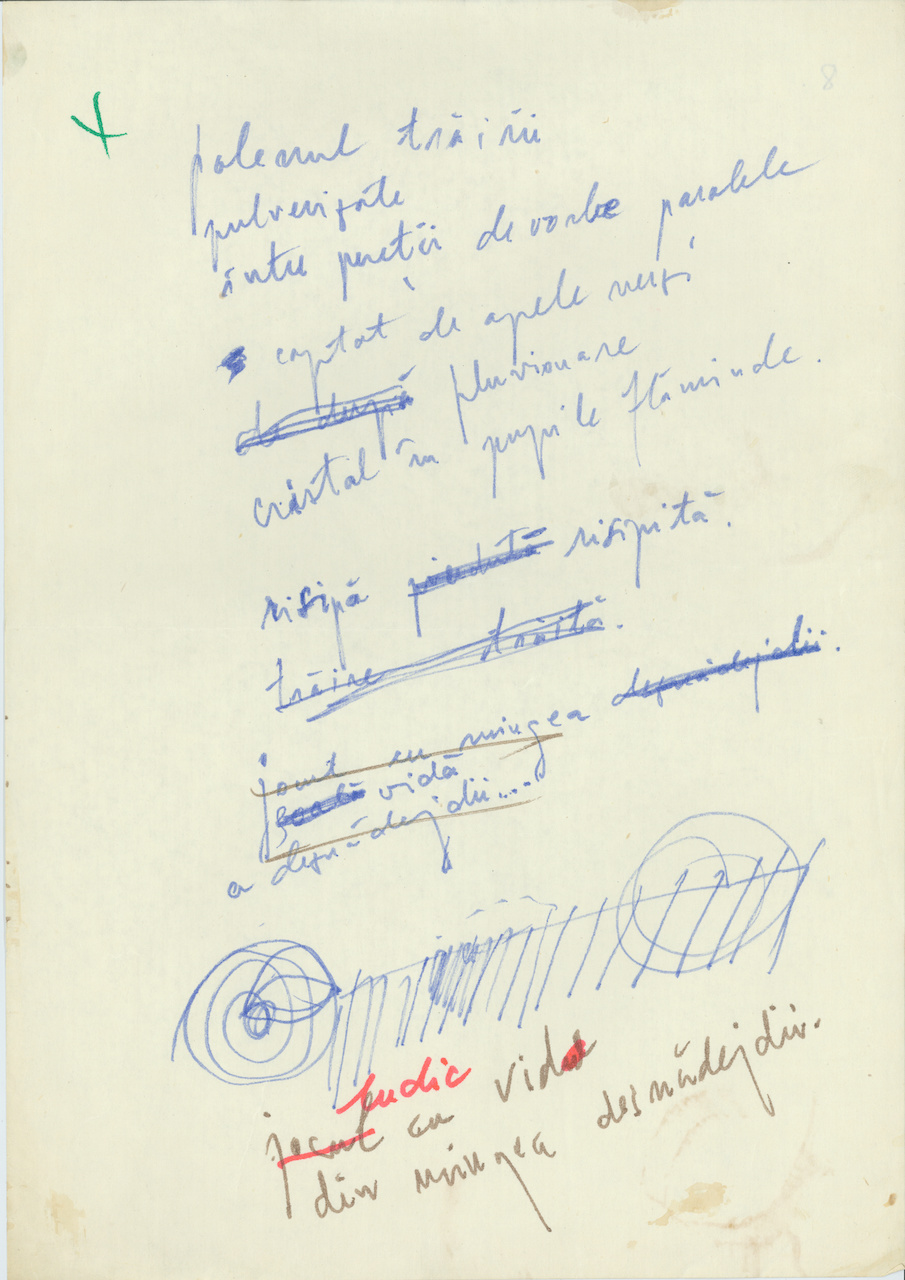 8
polenul trăirii
pulverizate
între pereții de vorbe paralele
captat de apele nerși
de după pluvionare
cristal în pupile flăminde.
risipă pierdută risipită.
trăire trăită.
jocul cu mingea desnădejdii.
goală vidă
a desnădejdii....
ludic
jocul cu vidul
din mingea desnădejdii.